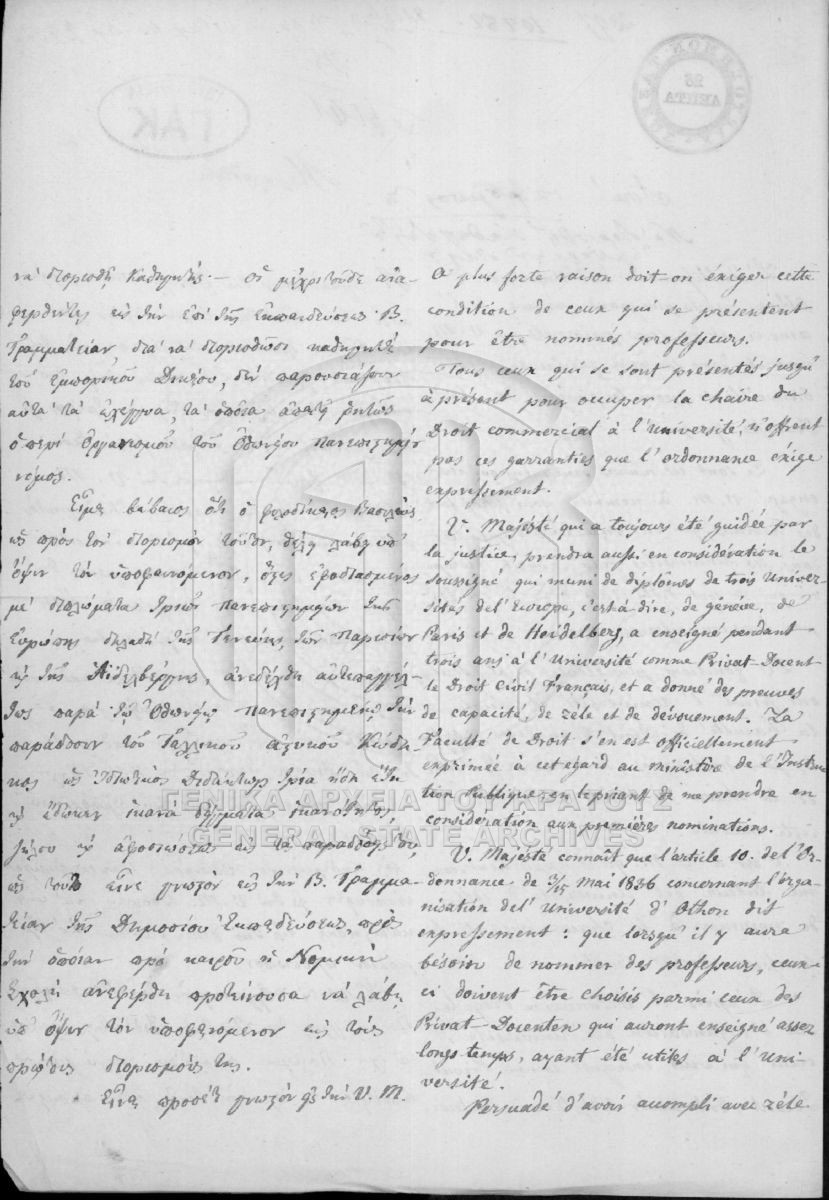 να διορισθῇ Καθηγητής. — Οἱ μέχρι τοῦδε ἀνα-
φερθέντες εἰς τὴν ἐπὶ τῆς Ἐκπαιδεύσεως Β.
Γραμματείαν, διὰ νὰ διορισθῶσι καθηγηταὶ
τοῦ Ἐμπορικοῦ Δικαίου, δὲν παρουσιάζουν
αὐτὰ τὰ ἐχέγγυα, τὰ ὁποῖα ἀπαιτεῖ ῥητῶς
ὁ περὶ Ὀργανισμοῦ τοῦ Ὀθωνείου Πανεπιστημίου
νόμος.
Εἶμαι βέβαιος ὅτι ὁ φιλοδίκαιος Βασιλεὺς
ὡς πρὸς τὸν διορισμὸν τοῦτον, θέλει λάβει ὑπ'
ὄψιν τὸν ὑποφαινόμενον, ὅστις ἐφοδιασμένος
μὲ διπλώματα τριῶν Πανεπιστημίων τῆς
Εὐρώπης δηλαδὴ τῆς Γενεύης, τῶν Παρισίων
καὶ τῆς Ἀϊδελβέργης, ἀνεδέχθη αὐτεπαγγέλ-
τως παρὰ τῷ Ὀθωνείῳ Πανεπιστημίῳ τὴν
παράδοσιν τοῦ Γαλλικοῦ ἀστικοῦ Κώδη-
κος ὡς Ἰδιωτικὸς Διδάκτωρ τρία ἤδη ἔτη
καὶ ἔδωκεν ἱκανὰ δείγματα ἱκανότητος
ζήλου καὶ ἀφοσιώσεως εἰς τὸ
ὡς τοῦτο εἶνε γνωστὸν εἰς τὴν Β. Γραμμα-
τείαν τῆς Δημοσίου Ἐκπαιδεύσεως, πρὸς
τὴν ὁποίαν πρὸ καιροῦ ἡ Νομικὴ
Σχολὴ ἀνεφέρθη προτείνουσα νὰ λάβῃ
ὑπ' ὄψιν τὸν ὑποφαινόμενον εἰς τοὺς
πρώτους διορισμούς της.
Εἶναι προσέτι γνωστὸν εἰς τὴν Υ. Μ.
A plus forte raison doit-on éxiger cette
condition de ceux qui se présentent
pour être nommés professeurs.
Tous ceux qui se sont présentés jusqu'
à présent pour occuper la chaire du
Droit commercial à l'université, n'offrent
pas ces garranties que l'ordonnance éxige
expressement.
V. Majesté qui a toujours été guidée par
la justice, prendra aussi en considération le
soussigné qui muni de diplômes de trois Univer-
sités de l'Europe, c'est à dire, de génève, de
Paris et de Heidelberg, a enseigné pendant
trois ans à l'Université comme Privat-Docent
le Droit Civil Français, et a donné des preuves
de capacité, de zéle et de dévouement. La
Faculté de Droit s'en est officiellement
exprimée à cet égard au ministère de l'Instruc
tion Publique, en le priant de me prendre en
considération aux premières nominations.
V. Majesté connaît que l'article 10. de l'Or-
donnance de 3/15 Mai 1836 concernant l'orga-
nisation de l'Université d'Othon dit
expressement: que lorsqu'il y aura
bésoin de nommer des professeurs, ceux-
ci doivent être choisis parmi ceux des
Privat-Docenten qui auront enseigné assez
longs-temps, ayant été utiles à l'Uni-
versité.
Persuadé d'avoir acompli avec zéle
ΓΕΝΙΚΑ ΑΡΧΕΙΑ ΤΟΥ ΚΡΑΤΟΥΣ
GENERAL STATE ARCHIVES